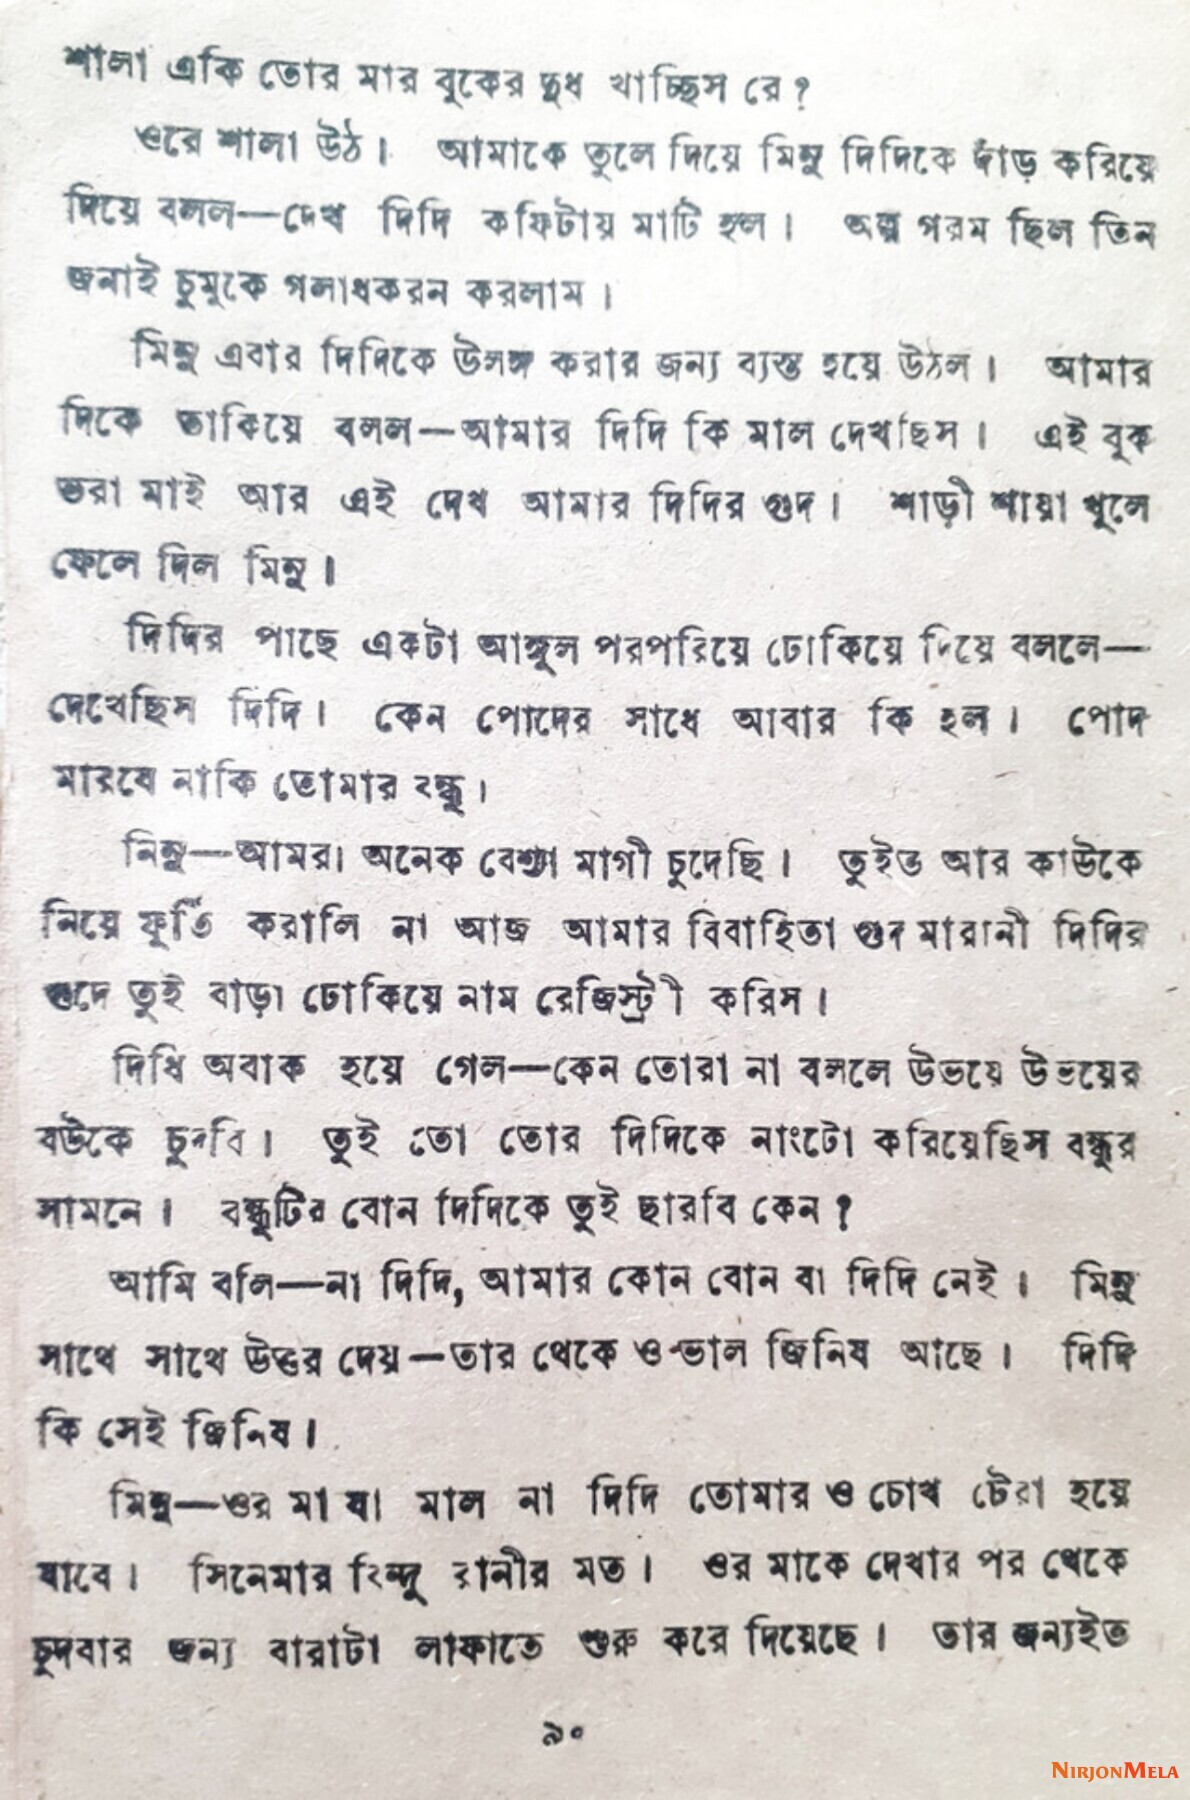 শালা একি তোর মার বুকের দুধ খাচ্ছিস রে ?
ওরে শালা উঠ। আমাকে তুলে দিয়ে মিনু দিদিকে দাঁড় করিয়ে
দিয়ে বলল—দেখ দিদি কফিটায় মাটি হল। অল্প গরম ছিল তিন
জনাই চুমুকে গলাধকরন করলাম।
মিনু এবার দিদিকে উলঙ্গ করার জন্য ব্যস্ত হয়ে উঠল। আমার
দিকে তাকিয়ে বলল—আমার দিদি কি মাল দেখছিস। এই বুক
ভরা মাই আর এই দেখ আমার দিদির গুদ। শাড়ী শায়া খুলে
ফেলে দিল মিনু।
দিদির পাছে একটা আঙ্গুল পরপরিয়ে ঢোকিয়ে দিয়ে বললে—
দেখেছিস দিদি। কেন পোদের সাধে আবার কি হল। পোদ
মারবে নাকি তোমার বন্ধু।
নিমু—আমরা অনেক বেশ্যা মাগী চুদেছি। তুইত আর কাউকে
নিয়ে ফুর্তি করালি না আজ আমার বিবাহিতা গুদ মারানী দিদির
গুদে তুই বাড়া ঢোকিয়ে নাম রেজিস্ট্রী করিস।
দিধি অবাক হয়ে গেল—কেন তোরা না বললে উভয়ে উভয়ের
বউকে চুদবি। তুই তো তোর দিদিকে নাংটো করিয়েছিস বন্ধুর
সামনে। বন্ধুটির বোন দিদিকে তুই ছারবি কেন ?
আমি বলি—না দিদি, আমার কোন বোন বা দিদি নেই। মিনু
সাথে সাথে উত্তর দেয়—তার থেকে ও ভাল জিনিষ আছে। দিদি
কি সেই জিনিষ।
মিনু—ওর মা যা মাল না দিদি তোমার ও চোখ টেরা হয়ে
যাবে। সিনেমার রানীর মত। ওর মাকে দেখার পর থেকে
চুদবার জন্য বারাটা লাফাতে শুরু করে দিয়েছে। তার জন্যইত
৯০
NIRJONMELA